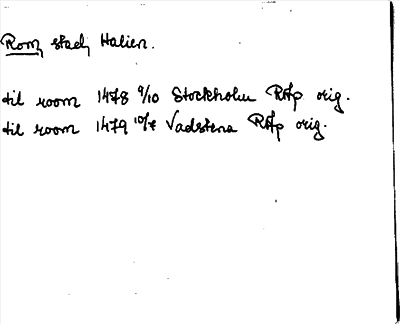 Rom, stad, Italien.
til room 1478 9/10 Stockholm RAp orig.
til room 1479 10/8 Vadstena RAp orig.